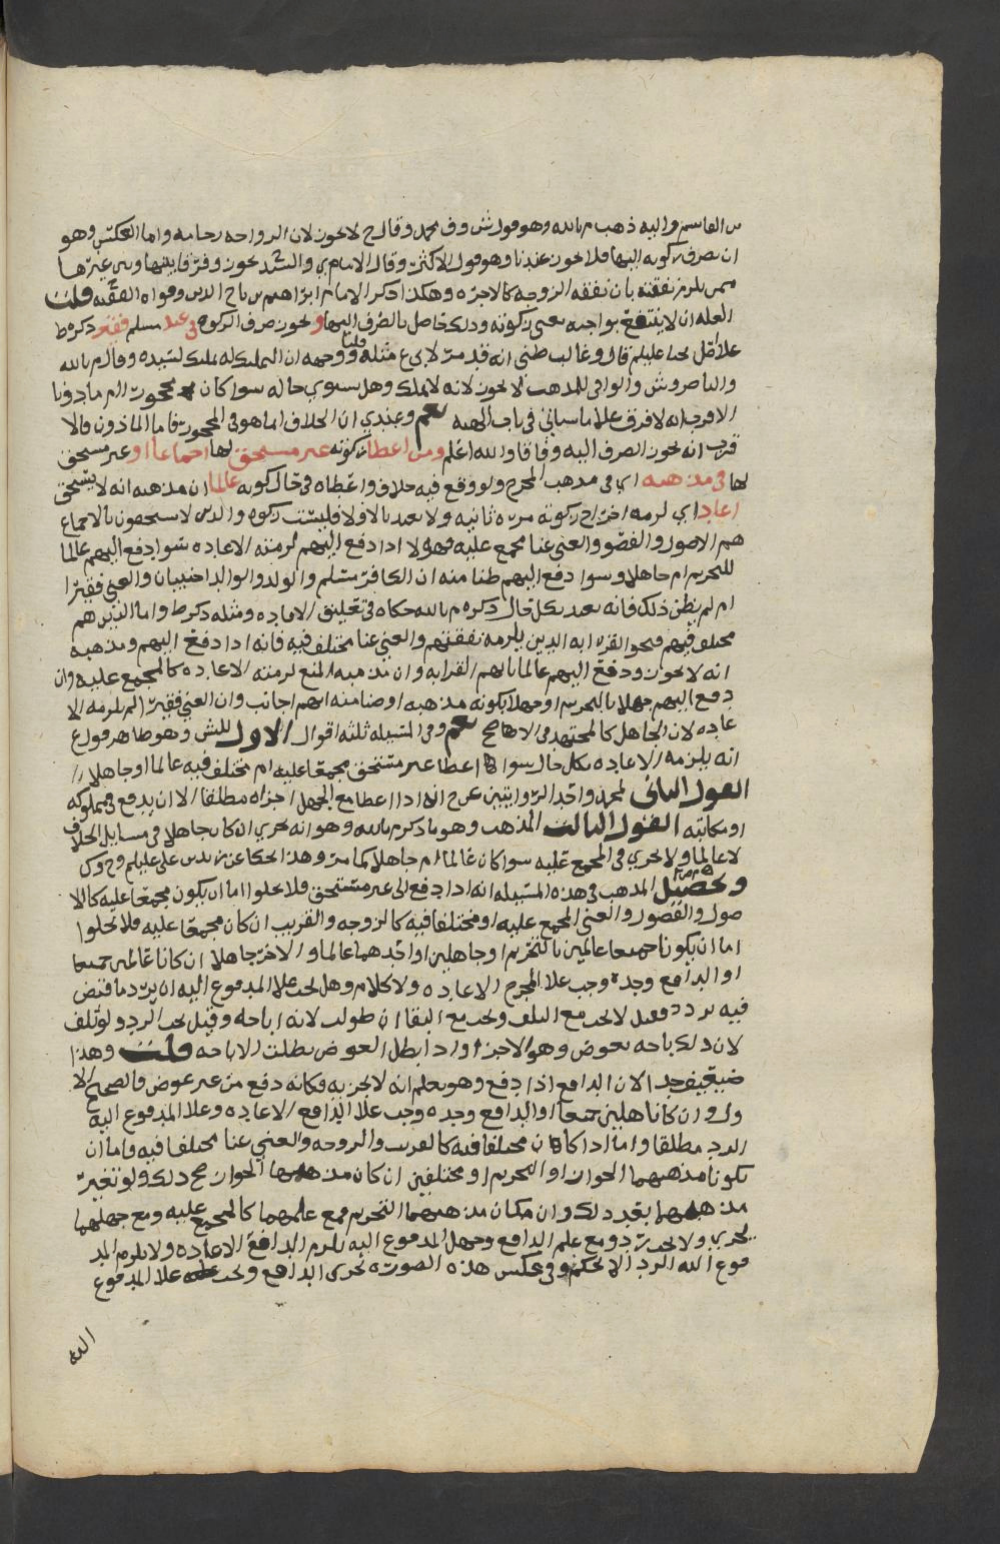 بن القاسم واليه ذهب م بالله وهو قول ش و ف ومحمد وقال ح لا يجوز لان الزواجه رحامه واما العكس وهو
ان تصرف زكوته اليها فلا يجوز عندنا وهو قول الاكثر وقال الامام ي والسيد يجوز وفرقا بينها وبين غيرها
ممن يلزمه نفقته بان نفقه الزوجه كالاجره وهكذا ذكر الامام ابراهيم بن تاج الدين وقواه الفقيه قلت
العله ان لا ينتفع بواجبه يعني زكوته وذلك حاصل بالصرف اليها ويجوز صرف الزكوه في عبد مسلم فقير ذكره ط
على اصل يحيى عليلم قال وغالب ظني انه قد مر لابي ع مثله قلنا ووجهه ان التمليك له تمليك لسيده وقال م بالله
والناصر وش والوافي للمذهب لا يجوز لانه لا يملك وهل يستوي حاله سوا كان محجورا ام ماذونا
الاقرب انه لا فرق على ما سياتي في باب الهبه نعم وعندي ان الخلاف انما هو في المحجور فاما الماذون فالا
قرب انه يجوز الصرف اليه وفاقا والله اعلم ومن اعطا زكوته غير مستحق لها اجماعا او غير مستحق
لها في مذهبه اي في مذهب المخرج ولو وقع فيه خلاف واعطاه في حال كونه عالما ان مذهبه انه لا يستحق
اعاد اي لزمه اخراج زكوته مره ثانيه ولا يعتد بالاولا فليست زكوه والذين لا يستحقون بالاجماع
هم الاصول والفصول والغني غنا مجمع عليه فهولا اذا دفع اليهم لزمته الاعاده سوا دفع اليهم عالما
للتحريم ام جاهلا وسوا دفع اليهم ظنا منه ان الكافر مسلم والولد والوالد اجنبيان والغني فقيرا
ام لم يظن ذلك فانه يعيد بكل حال ذكره م بالله حكاه في تعليق الافاده ومثله ذكر ط واما الذين هم
مختلف فيهم فنحو القرابه الذين يلزمه نفقتهم والغني غنا مختلف فيه فانه اذا دفع اليهم ومذهبه
انه لا يجوز ودفع اليهم عالما بانهم القرابه وان مذهبه المنع لزمته الاعاده كالمجمع عليه وان
دفع اليهم جهلا بالتحريم او جهلا بكونه مذهبه او ظنا منه انهم اجانب وان الغني فقيرا لم يلزمه الا
عاده لان الجاهل كالمجتهد في الاصح نعم وفي المسئله ثلثه اقوال الاول للش وهو ظاهر قول ع
انه يلزمه الاعاده بكل حال سوا اعطا غير مستحق مجمعا عليه ام مختلف فيه عالما او جاهلا
القول الثاني لمحمد واحد الروايتين عن ح انه اذا اعطا مع الجهل اجزاه مطلقا الا ان يدفع في مملوكه
او مكاتبه القول الثالث المذهب وهو ما ذكره م بالله وهو انه يجزي ان كان جاهلا في مسايل الخلاف
لا عالما ولا يجزي في المجمع عليه سوا كان عالما ام جاهلا كما مر وهذا الحكا عن زيد بن علي عليلم و ح و ك
وتحصيل المذهب في هذه المسئله انه اذا دفع الى غير مستحق فلا يخلوا اما ان يكون مجمعا عليه كالا
صول والفصول والغني المجمع عليه او مختلفا فيه كالزوجه والقريب ان كان مجمعا عليه فلا يخلوا
اما ان يكونا جميعا عالمين بالتحريم او جاهلين او احدهما عالما والاخر جاهلا ان كانا عالمين جميعا
او الدافع وحده وجب على المخرج الاعاده ولا كلام وهل يجب على المدفوع اليه ان يرد ما قبض
فيه تردد فقيل لا يجب مع التلف ويجب مع البقا ان طولب لانه اباحه وقيل يجب الرد ولو تلف
لان ذلك اباحه بعوض وهو الاجزا واذا بطل العوض بطلت الاباحه قلت وهذا
ضعيف جدا لان الدافع اذا دفع وهو يعلم انه لا يجزيه فكانه دفع من غير عوض والصحيح الا
ول وان كانا جاهلين جميعا او الدافع وحده وجب على الدافع الاعاده وعلى المدفوع اليه
الرد مطلقا واما اذا كان مختلفا فيه كالقريب والزوجه والغني غنا مختلفا فيه فاما ان
يكونا مذهبهما الجواز او التحريم او مختلفين ان كان مذهبهما الجواز صح ذلك ولو تغير
مذهبهما بعد ذلك وان كان مذهبهما التحريم فمع علمهما كالمجمع عليه ومع جهلهما
يجزي ولا يجب رد ومع علم الدافع وجهل المدفوع اليه يلزم الدافع الاعاده ولا يلزم المد
فوع اليه الرد الا لحكم وفي عكس هذه الصوره يجزى الدافع ويجب على المدفوع
اليه